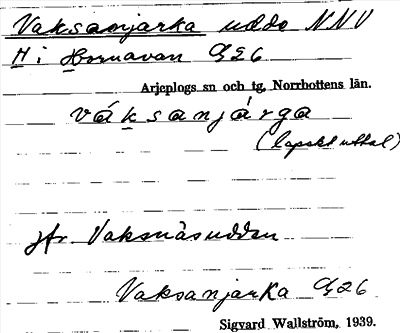 Vaksanjarka udde NNV
H i Hornavan G26
Arjeplogs sn och tg, Norrbottens län.
váksanjárga
(lapskt uttal)
jfr. Vaksnäsudden
Vaksanjarka G26
Sigvard Wallström, 1939.